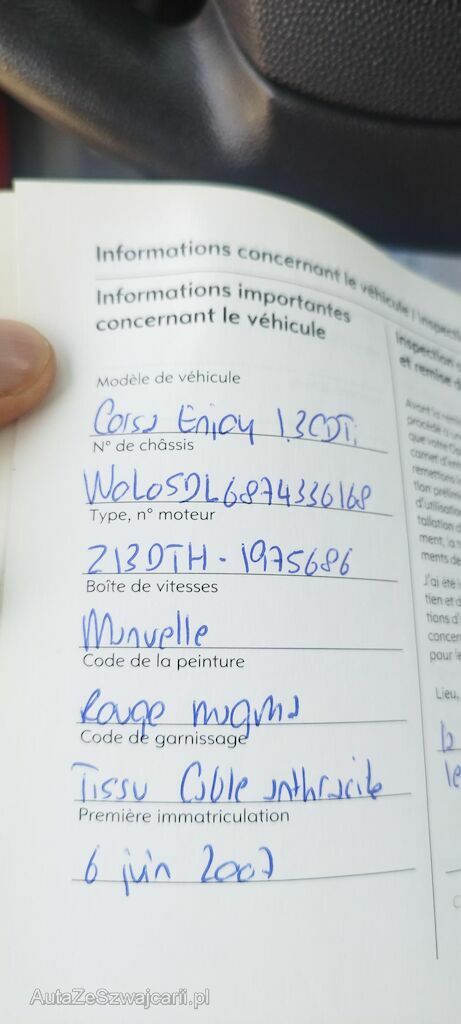 Informations concernant le véhicule / inspecti
Informations importantes
concernant le véhicule
Modèle de véhicule
Corsa Enjoy 1.3CDTi
N° de châssis
W0L0SDL6874336168
Type, n° moteur
Z13DTH - 1975686
Boîte de vitesses
Manuelle
Code de la peinture
Rouge magma
Code de garnissage
Tissu Cable anthracite
Première immatriculation
6 juin 2007
Inspection
et remise d
Avant la remis
procédé à un
que votre Op
carnet d'en
remettons
tion prélim
d'utilisatio
tallation d
ment, la
ments de
J'ai été i
tien et d
tions d'
concer
pour le
Lieu,
le
AutaZeSzwajcarii.pl